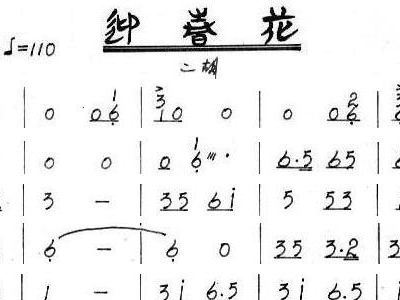 迎春花
♩=110
二胡
| 0 06 | 10 0 | 0 06 |
| 0 0 | 0 6 | 6·5 65 |
| 3 – | 35 6i | 5 53 |
| 6 – | 6 0 | 35 3·2 |
| 1 – | 3i 6·5 | 3i 6·5 |